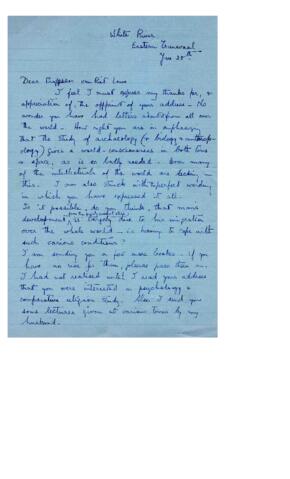 White River
Eastern Transvaal
Jan 28th
Dear Professor van Riet Lowe
I feel I must express my thanks for, &
appreciation of, the offprint of your address - No
wonder you have had letters about it from all over
the world - How right you are in emphasising
that the study of archaeology (+ biology + anthropo-
logy) gives a world-consciousness in both time
& space, as is so badly needed - Even many
of the intellectuals of the world are lacking in
this. I am also struck with the perfect wording
in which you have expressed it all.
Is it possible, do you think, that man's
development, is largely due to his migration
over the whole world - is having to cope with
such various conditions?
I am sending you a few more books - If you
have no use for them, please pass them on.
I had not realised until I read your address
that you were interested in psychology &
comparative religion study. Also I send you
some lectures given at various times by my
husband.